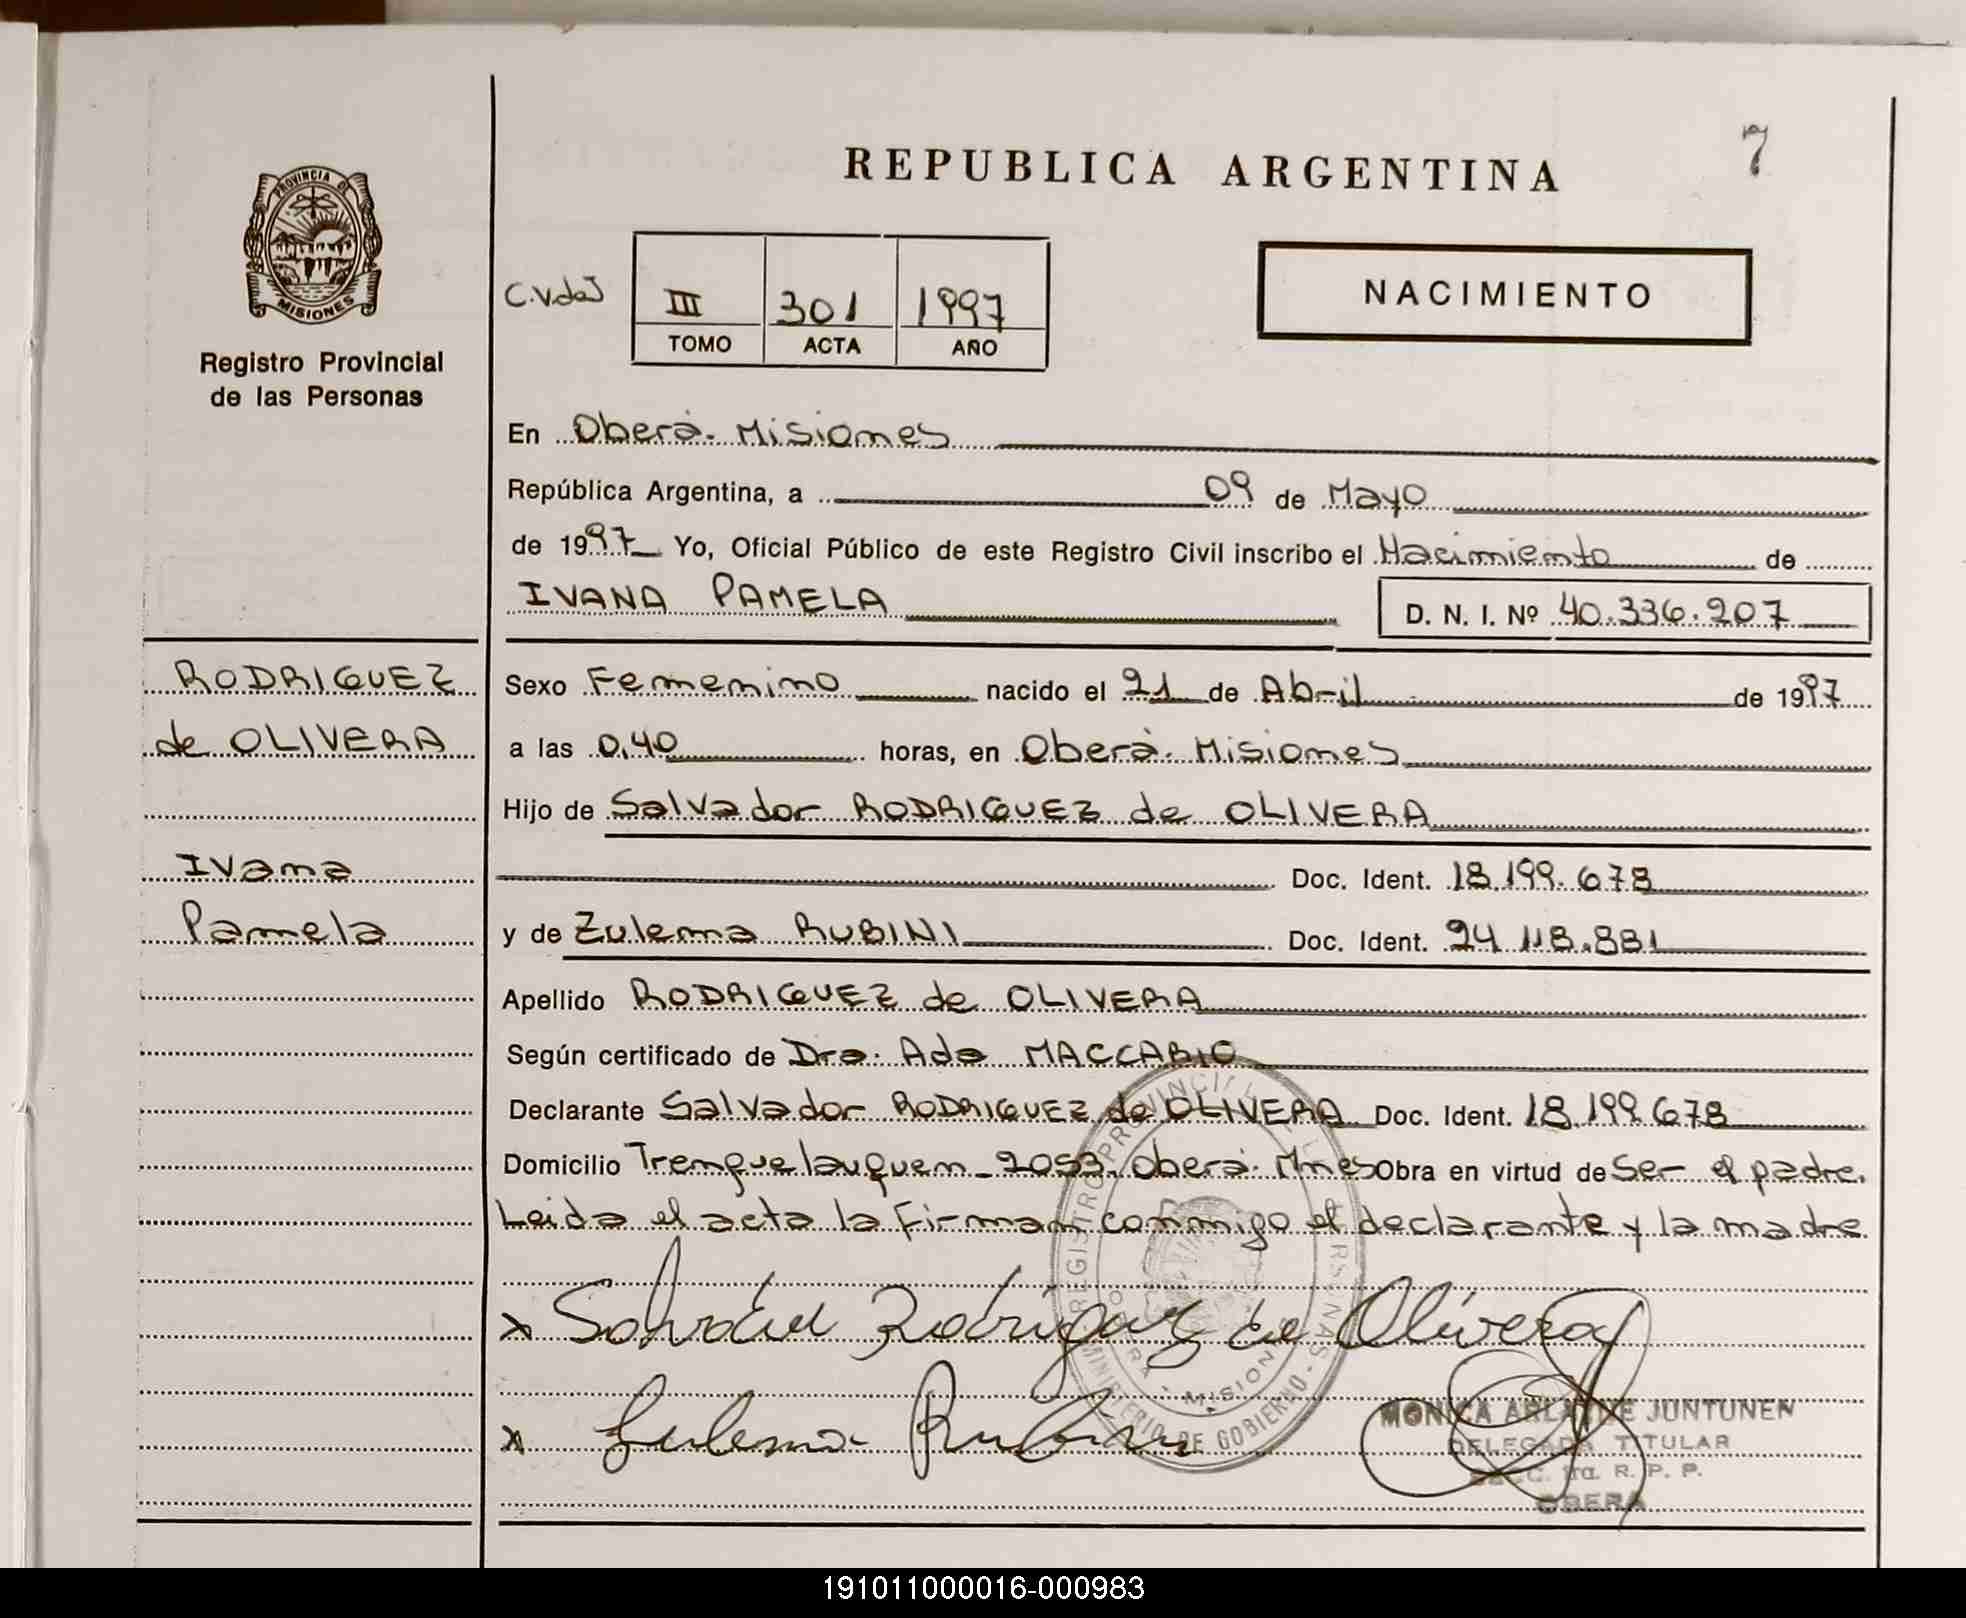 7
REPUBLICA ARGENTINA
PROVINCIA DE
MISIONES
Registro Provincial
de las Personas
III 301 1997
TOMO ACTA AÑO
NACIMIENTO
En Oberá. Misiones
República Argentina, a 09 de Mayo
de 1997 Yo, Oficial Público de este Registro Civil inscribo el Nacimiento de
IVANA PAMELA D. N. I. Nº 40.336.207
RODRIGUEZ
de OLIVERA
Ivana
Pamela
Sexo Femenino nacido el 21 de Abril de 1997
a las 0,40 horas, en Oberá. Misiones
Hijo de Salvador RODRIGUEZ de OLIVERA
Doc. Ident. 18.199.678
y de Zulema RUBINI Doc. Ident. 24.118.881
Apellido RODRIGUEZ de OLIVERA
Según certificado de Dra. Ada MACCABIO
Declarante Salvador RODRIGUEZ de OLIVERA Doc. Ident. 18.199.678
Domicilio Trenquelauquem 2053. Oberá. Mnes Obra en virtud de Ser el padre.
Leida el acta la Firman conmigo el declarante y la madre
x Salvador Rodriguez de Olivera
x Zulema Rubini
MONICA JUNTUNEN
DELEGADA TITULAR
R. P. P.
OBERA
MINISTERIO DE GOBIERNO
191011000016-000983